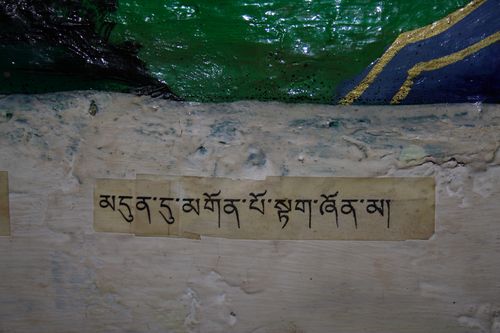 མདུན་དུ་མགོན་པོ་སྟག་ཞོན་མ།